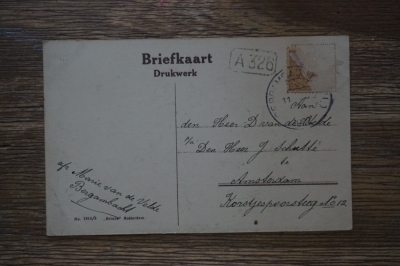 Briefkaart
Drukwerk
A 326
Aan
den Heer D van de Velde
p/a Den Heer J Schutte
te
Amsterdam
Korstjespoorsteeg No 12
a/z Marie van de Velde
Bergambacht